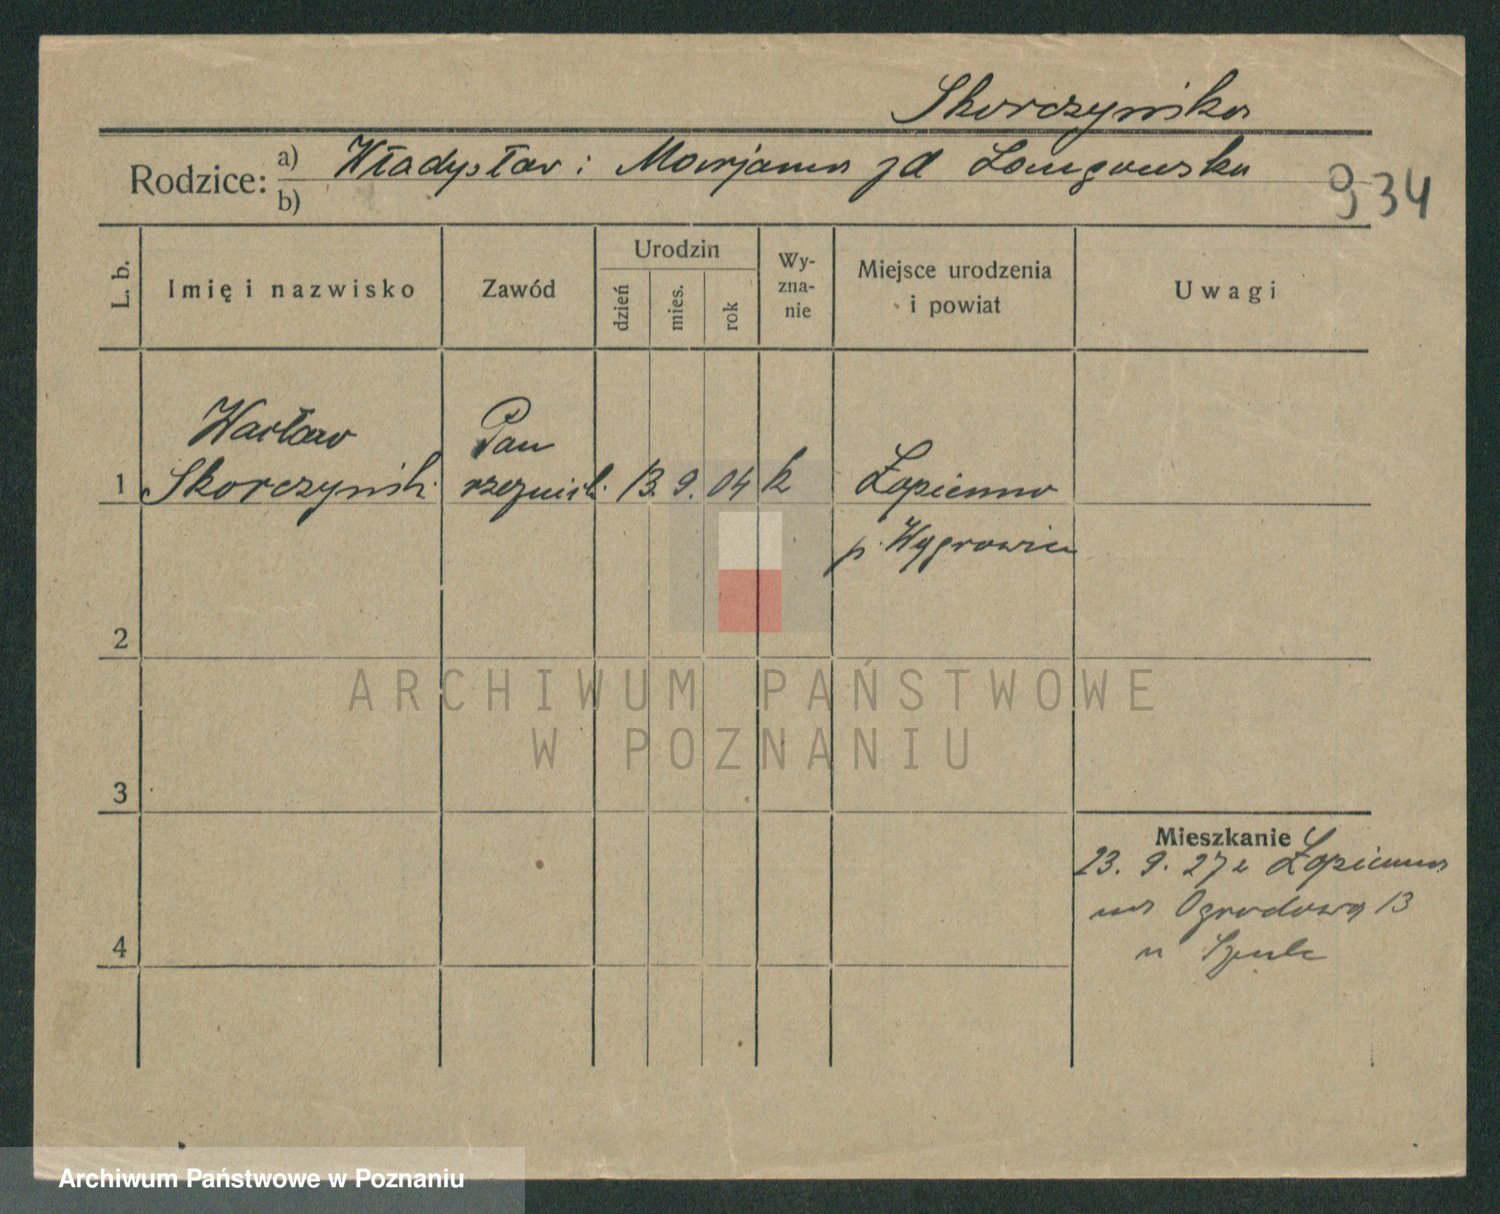 Skorczyńska
Rodzice: a) Władysław i Marjanna zd
b)
934
L. b.
Imię i nazwisko
Zawód
Urodzin
dzień
mies.
rok
Wy-
zna-
nie
Miejsce urodzenia
i powiat
Uwagi
Wacław
Skorczyński
Pan
rzeźnicki
1
13. 9. 04
k
Łopienno
p. Wągrowiec
2
3
4
Mieszkanie
23. 9. 27 z Łopienna
na Ogrodową 13
u Szulc
ARCHIWUM PAŃSTWOWE
W POZNANIU
Archiwum Państwowe w Poznaniu